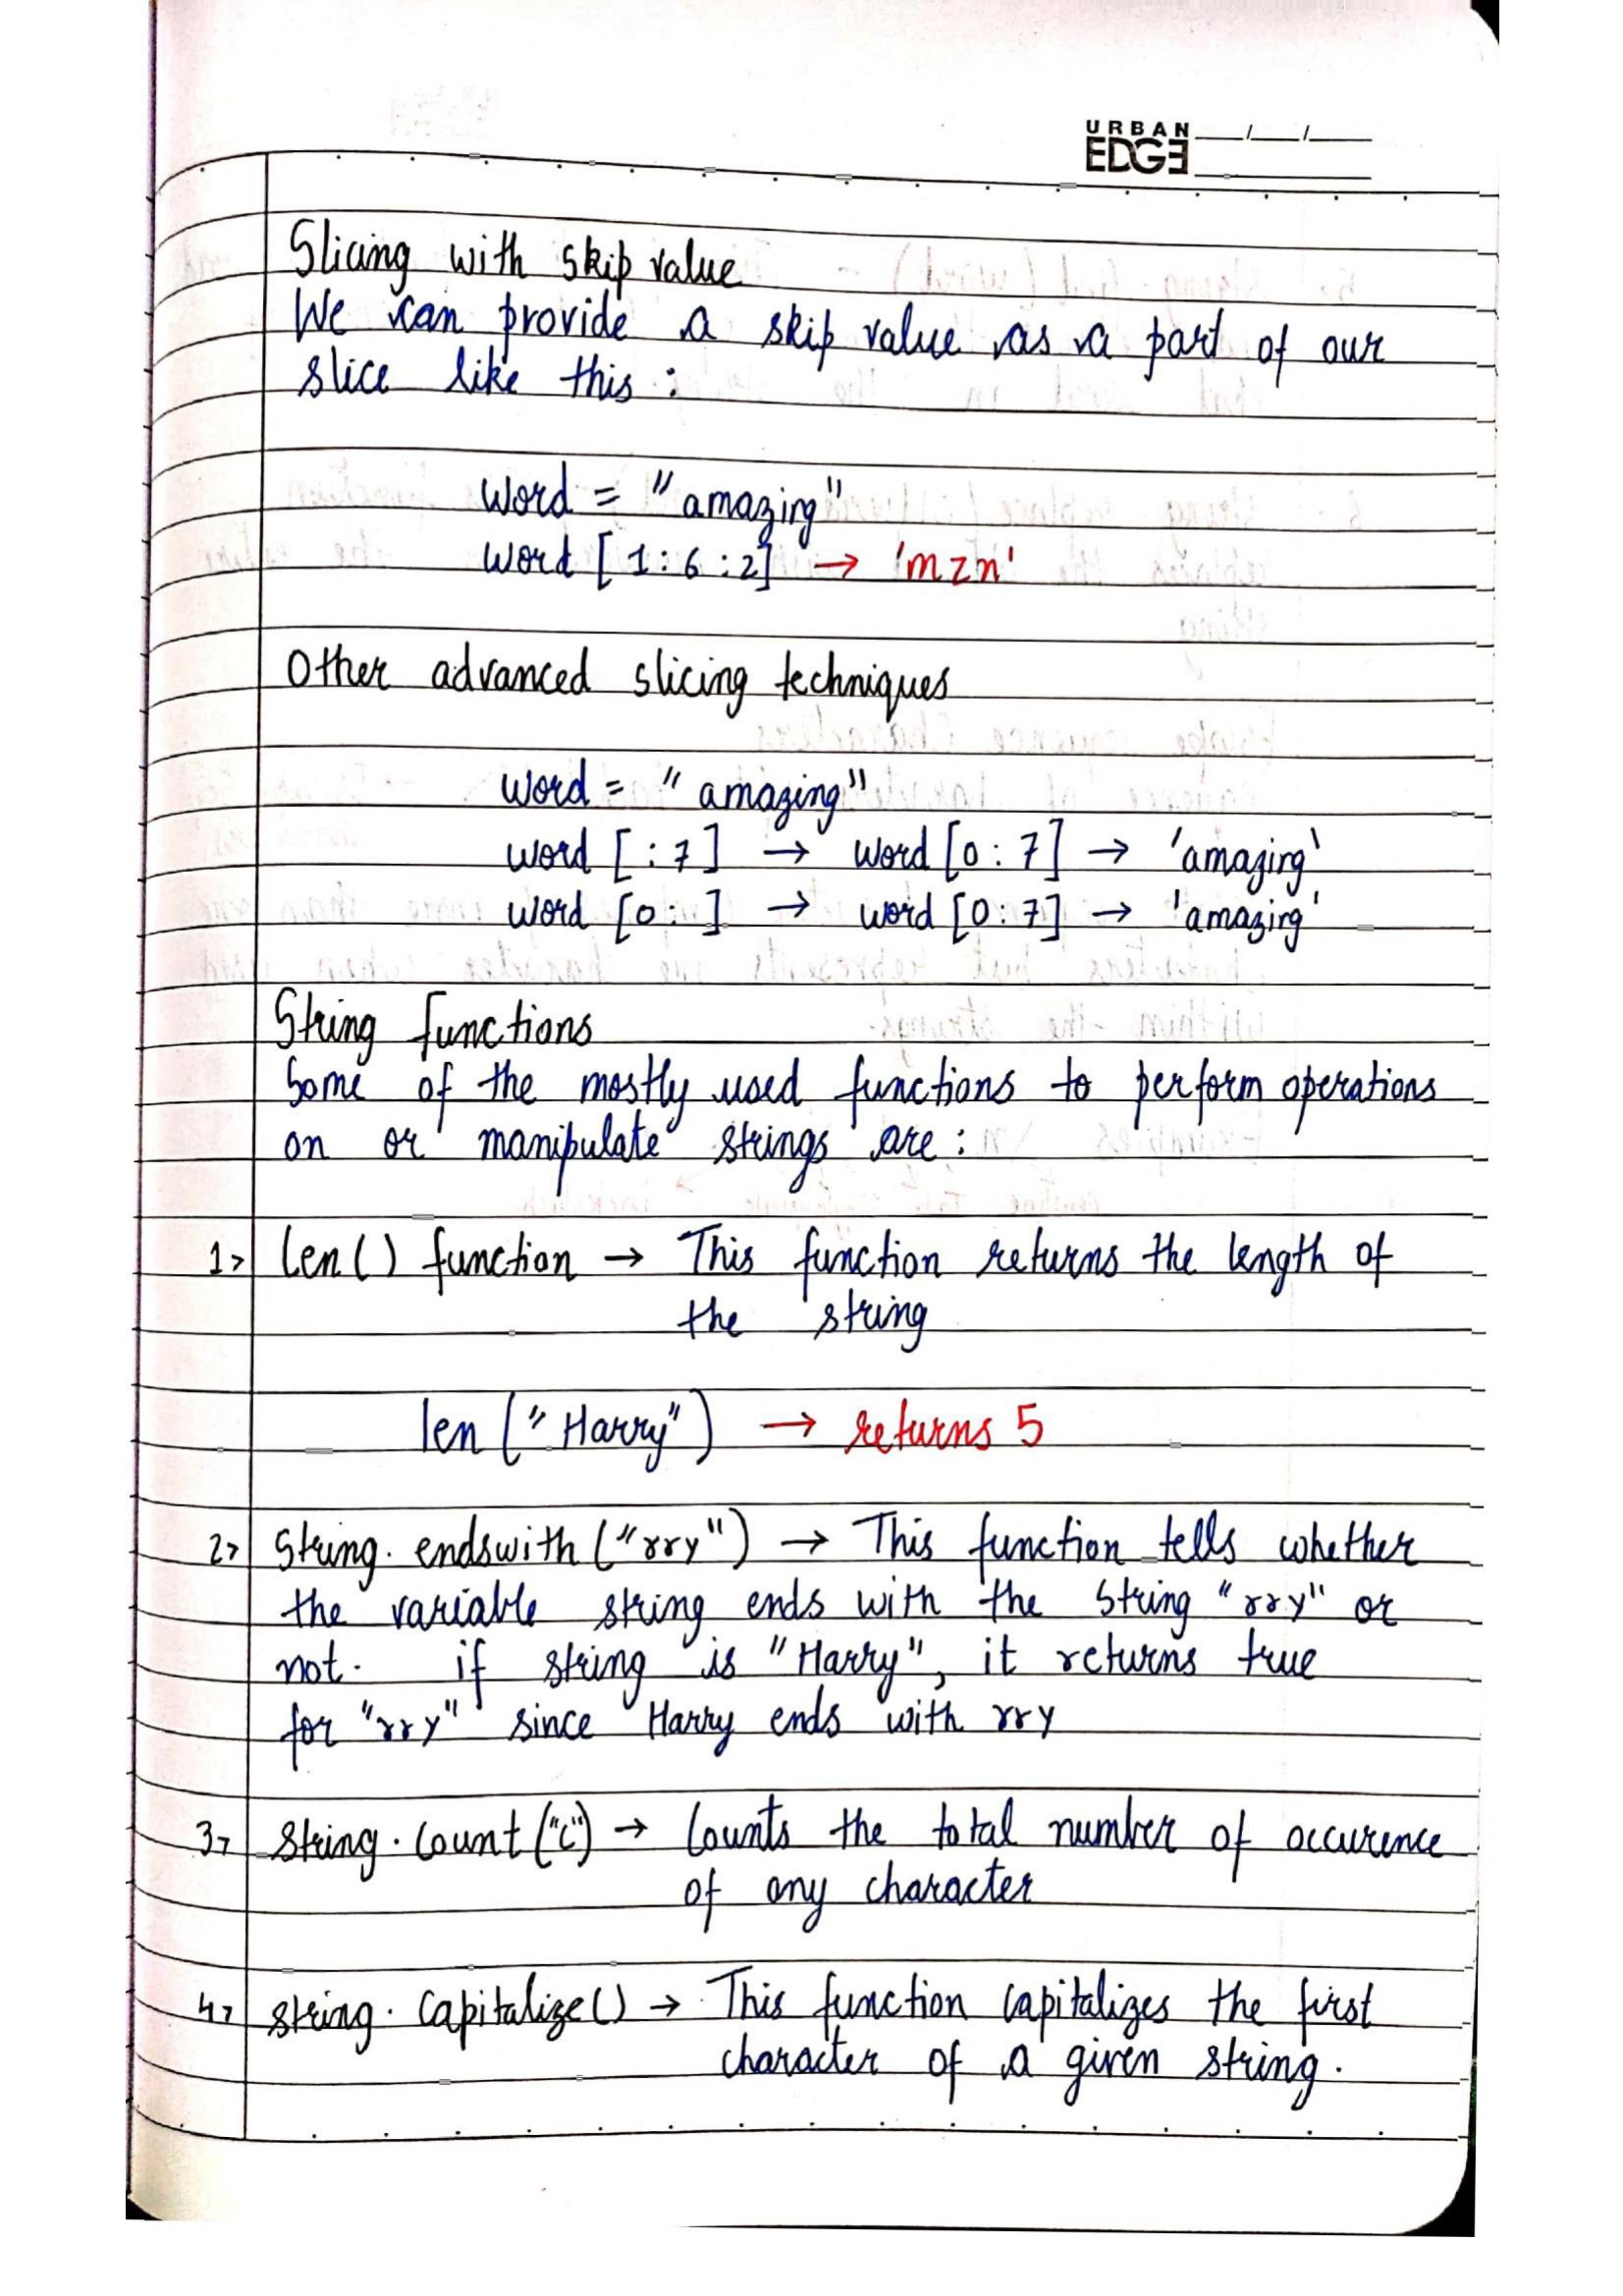 URBAN
EDGE
Slicing with skip value
We can provide a skip value as a part of our
slice like this :
word = "amazing"
word [1:6:2] → 'mzn'
Other advanced slicing techniques
word = "amazing"
word [:7] → word [0:7] → 'amazing'
word [0:] → word [0:7] → 'amazing'
String functions
Some of the mostly used functions to perform operations
on or manipulate strings are :
1> len() function → This function returns the length of
the string
len ("Harry") → returns 5
2> String. endswith ("rry") → This function tells whether
the variable string ends with the string "rry" or
not. if string is "Harry", it returns true
for "rry" since Harry ends with rry
3> string. count ("c") → Counts the total number of occurence
of any character
4> string. capitalize() → This function capitalizes the first
character of a given string.